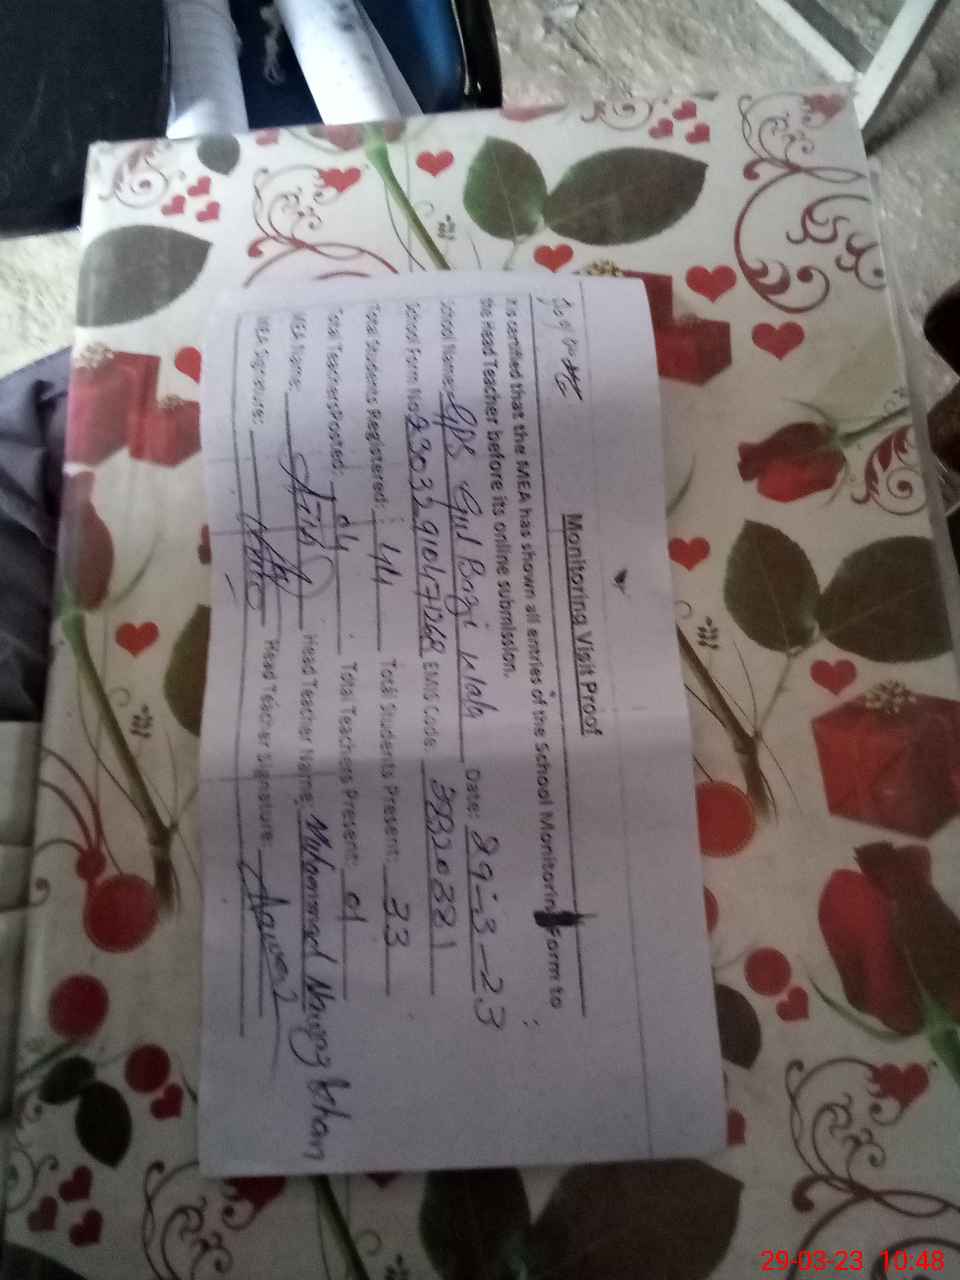 Monitoring Visit Proof
It is certified that the MEA has shown all entries of the School Monitoring Form to
the Head Teacher before its online submission.
School Name: GPS Gul Bagi Date: 29-3-23
School Form No: EMIS Code:
Total Students Registered: 44 Total Students Present: 33
Total Teachers Posted: 04 Total Teachers Present: 01
MEA Name: Head Teacher Name: Muhammad Nawaz Khan
MEA Signature: Head Teacher Signature: Nawaz
29-03-23 10:48